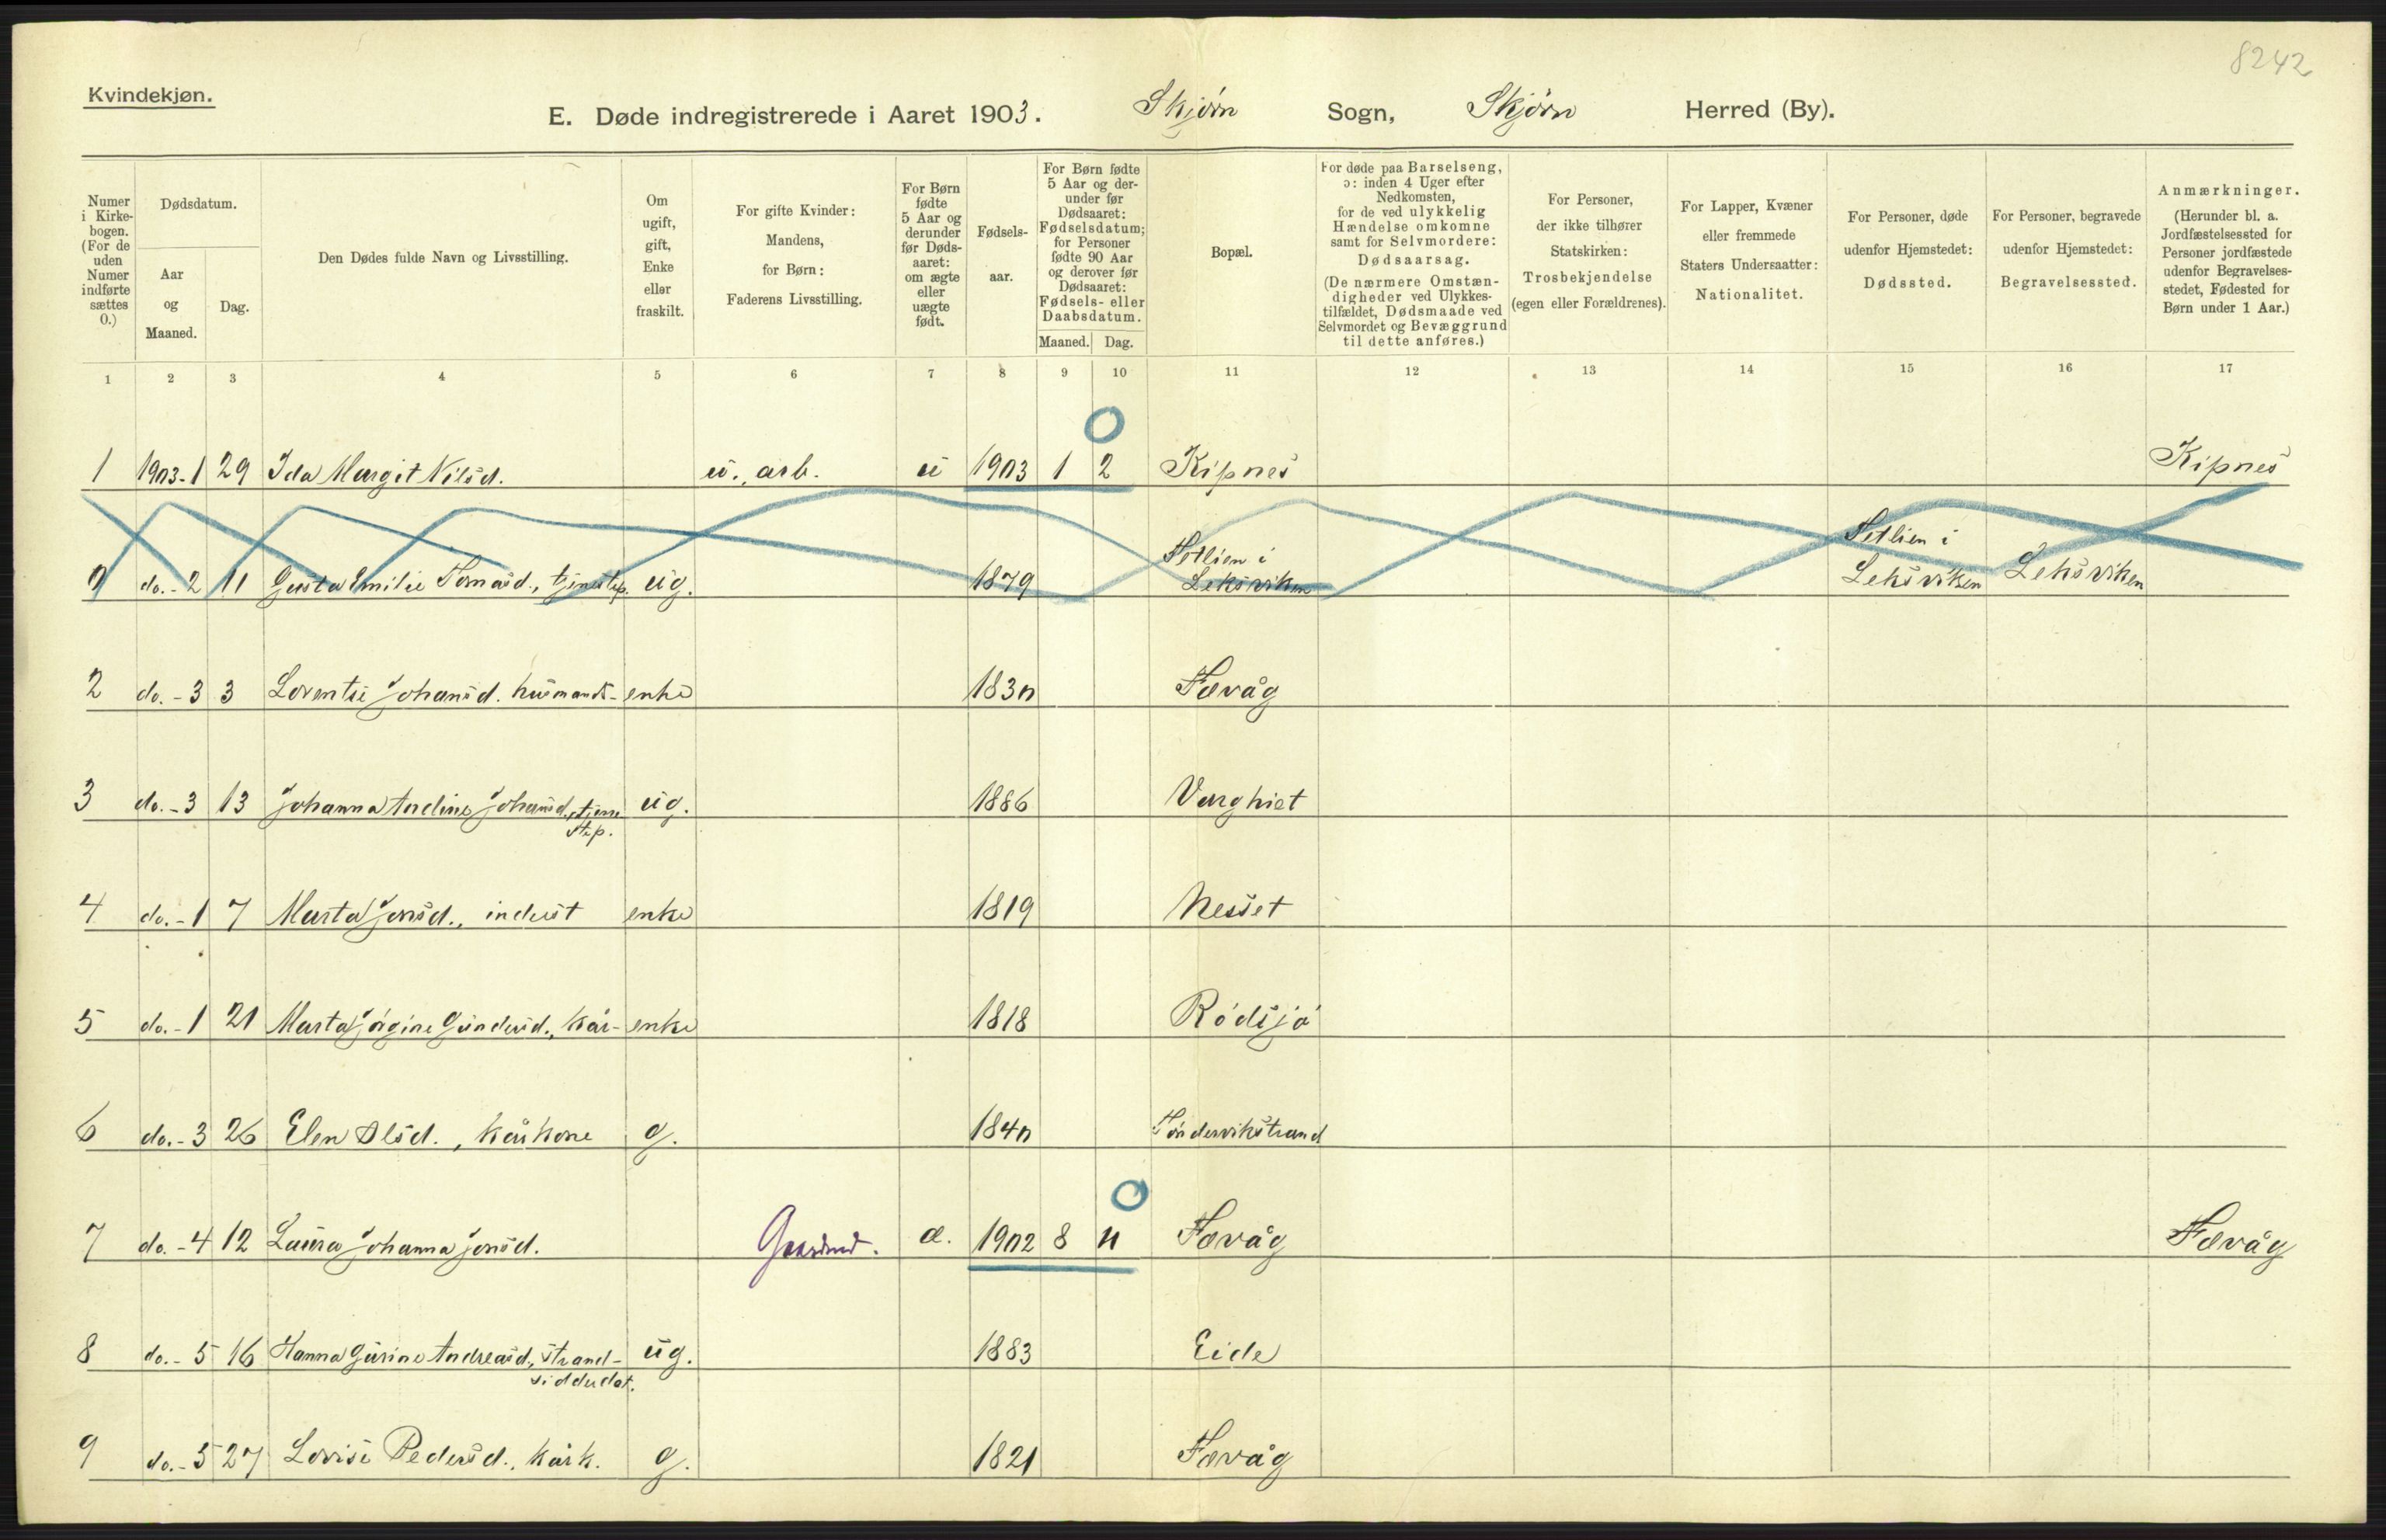 8242
Kvindekjøn.
E. Døde indregistrerede i Aaret 1903. Skjörn Sogn, Skjörn Herred (By).
Numer
i Kirke-
bogen.
(For de
uden
Numer
indførte
sættes
0.)
Dødsdatum.
Aar
og
Maaned.
Dag.
Den Dødes fulde Navn og Livsstilling.
Om
ugift,
gift,
Enke
eller
fraskilt.
For gifte Kvinder:
Mandens,
for Børn:
Faderens Livsstilling.
For Børn
fødte
5 Aar og
derunder
før Døds-
aaret:
om ægte
eller
uægte
født.
Fødsels-
aar.
For Børn fødte
5 Aar og der-
under før
Dødsaaret:
Fødselsdatum;
for Personer
fødte 90 Aar
og derover før
Dødsaaret:
Fødsels- eller
Daabsdatum.
Maaned. Dag.
Bopæl.
For døde paa Barselseng,
ɔ: inden 4 Uger efter
Nedkomsten,
for de ved ulykkelig
Hændelse omkomne
samt for Selvmordere:
Dødsaarsag.
(De nærmere Omstæn-
digheder ved Ulykkes-
tilfældet, Dødsmaade ved
Selvmordet og Bevæggrund
til dette anføres.)
For Personer,
der ikke tilhører
Statskirken:
Trosbekjendelse
(egen eller Forældrenes).
For Lapper, Kvæner
eller fremmede
Staters Undersaatter:
Nationalitet.
For Personer, døde
udenfor Hjemstedet:
Dødssted.
For Personer, begravede
udenfor Hjemstedet:
Begravelsessted.
Anmærkninger.
(Herunder bl. a.
Jordfæstelsessted for
Personer jordfæstede
udenfor Begravelses-
stedet, Fødested for
Børn under 1 Aar.)
1 2 3 4 5 6 7 8 9 10 11 12 13 14 15 16 17
1 1903-1 29 Ida Margit Nilsd. u., arb. u 1903 1 2 Kipnes Kipnes
Setlien i Setlien i
0 do.-2 11 Gusta Emilie Tomasd., tjenestep. ug. 1879 Leksviken Leksviken Leksviken
2 do.-3 3 Lorentse Johansd. husmands- enke 1830 Fevåg
3 do.-3 13 Johanna Andine Johansd., tjene ug. 1886 Varghiet
step.
4 do.-1 7 Marta Jonsd., inderst enke 1819 Nesset
5 do.-1 21 Marta Jörgine Gundersd., kår- enke 1818 Rödsjö
6 do.-3 26 Elen Olsd., kårkone g. 1840 Söndervikstrand
7 do.-4 12 Laura Johanna Jonsd. Gaardmd. æ. 1902 8 11 Fevåg Fevåg
8 do.-5 16 Hanna Gurine Andreasd., strand- ug. 1883 Eide
sidderdat.
9 do.-5 27 Lovise Pedersd., kårk. g. 1821 Fevåg